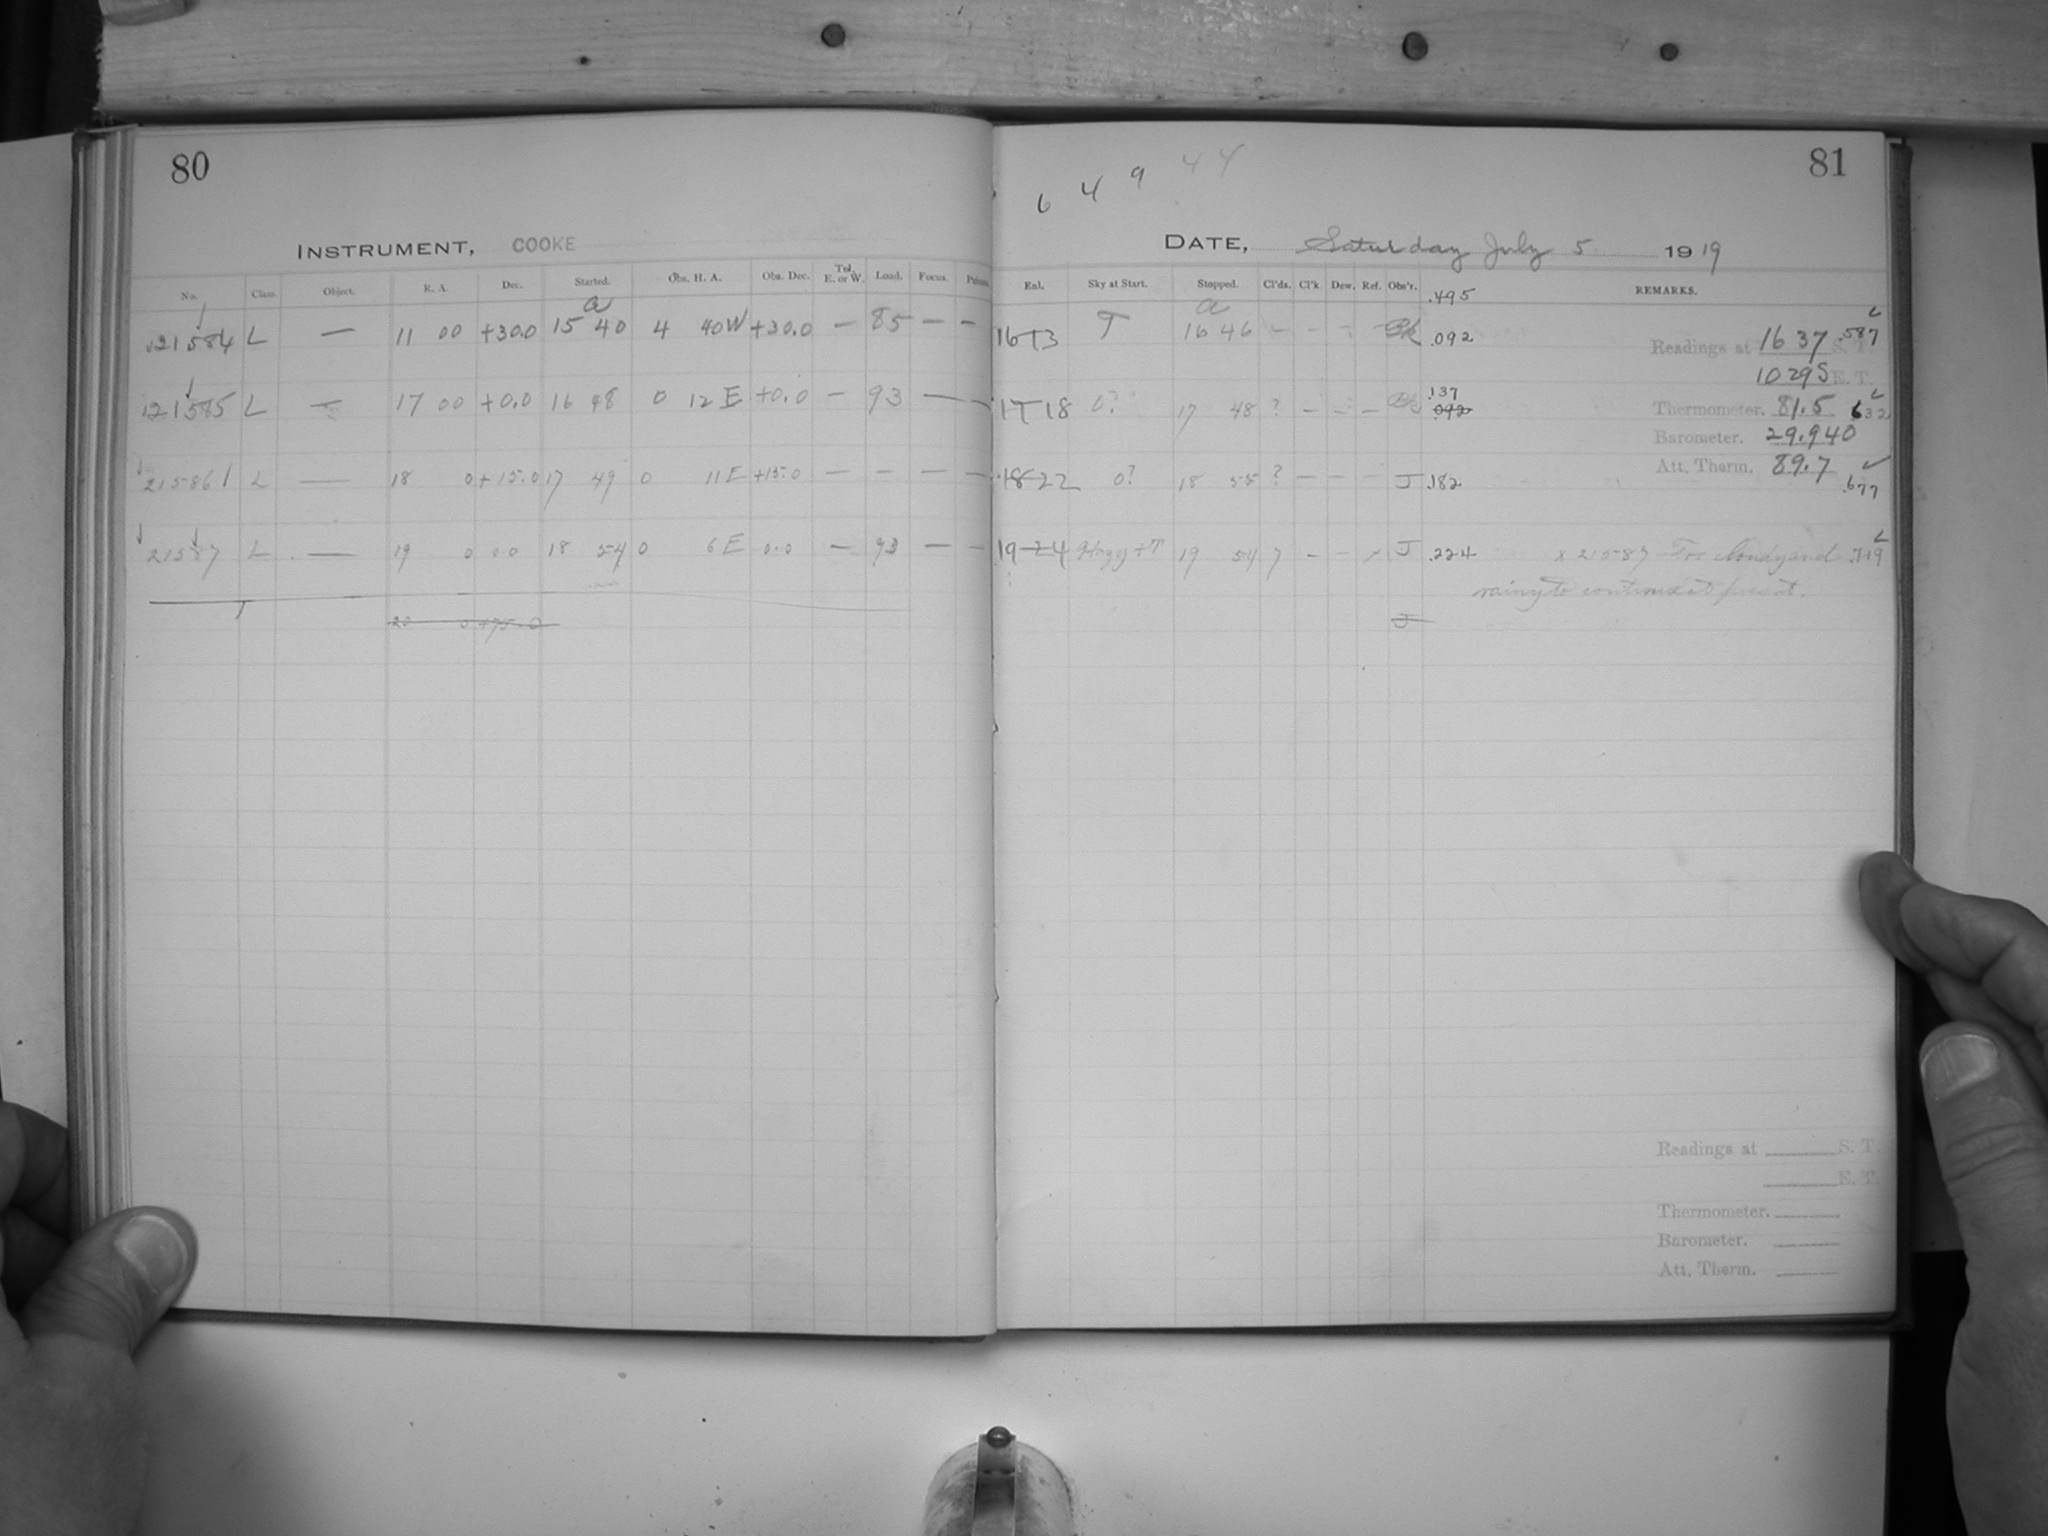 80
INSTRUMENT, COOKE
No. Class. Object. R. A. Dec. Started. Obs. H. A. Obs. Dec. Tel. E. or W. Load. Focus.
21584 L — 11 00 +30.0 15 40 4 40W +30.0 — 85 — —
21585 L — 17 00 +0.0 16 48 0 12 E +0.0 — 93 — —
21586 L — 18 0 +15.0 17 49 0 11 E +15.0 — — — —
21587 L — 19 0 0.0 18 54 0 6 E 0.0 — 93 — —
20 0 +75.0
81
6 4 9 4 4
DATE, Saturday July 5 1919
Enl. Sky at Start. Stopped. Cl'ds. Cl'k Dew. Ref. Obs'r. .495 REMARKS.
16 T3 T 16 46 — — .092
17 T 18 0? 17 48 ? — — — .137
.092
18 22 0? 18 55 ? — — — J .182
19 24 19 54 ? — — J .224 x 21587 Too cloudy and .719
rainy to continue at present.
J
Readings at 16 37 S. T. .587
10 29 S E. T.
Thermometer. 81.5 632
Barometer. 29.940
Att. Therm. 89.7 .677
Readings at S. T.
E. T.
Thermometer.
Barometer.
Att. Therm.